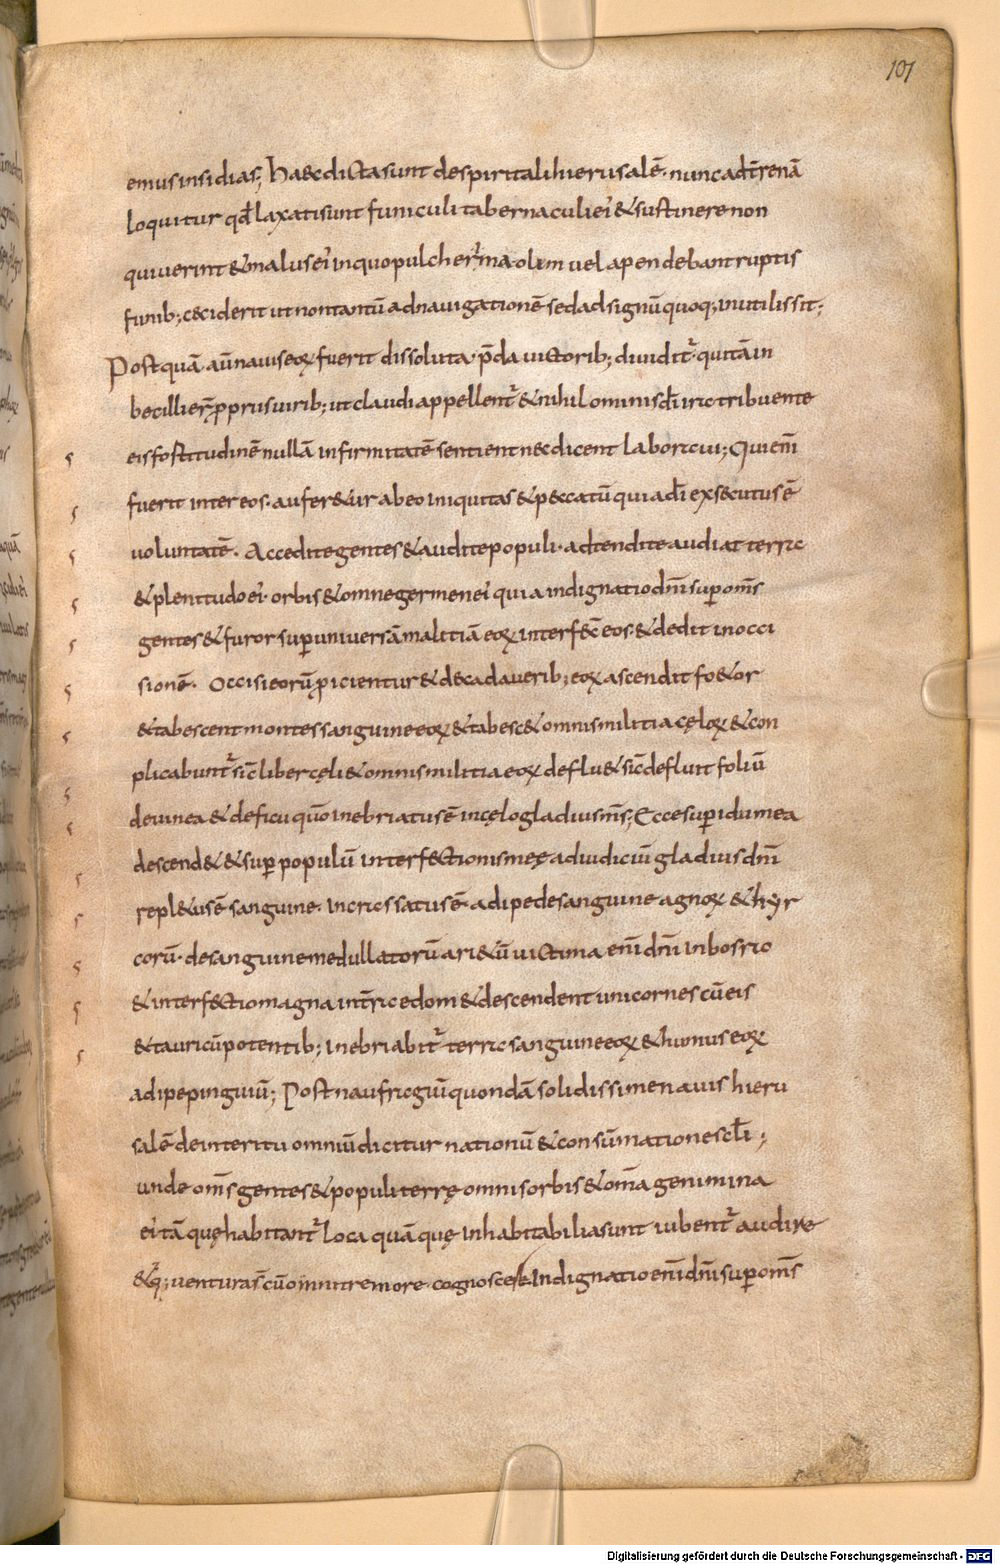 101
emus insidias; Haec dicta sunt de spiritali hierusalē. nunc ad t̄renā
loquitur qđ laxati sunt funiculi tabernaculi ei' & sustinere non
quiverint & malus ei' in quo pulcherrima olim vela pendebant ruptis
funib; ceciderit ut non tantū ad navigationē sed ad signū quoq; inutilis sit;
Postquā aū navis eoꝝ fuerit dissoluta. p̄da victorib; dividit̄. qui tā in
becilli er̄ p prus virib; ut claudi appellent̄ & nihilominus dn̄i tribuente
eis fortitudinē nullā infirmitatē sentient nec dicent laboravi; Qui enī
fuerit inter eos. auferetur ab eo iniquitas & peccatū qui a dī exsecutus ē
voluntatē. Accedite gentes & audite populi. adtendite audiat terra
& plenitudo ei'. orbis & omne germen ei' quia indignatio dn̄i sup om̄s
gentes & furor sup universā malitiā eoꝝ interfec̄ eos. & dedit in occi
sionē. Occisi eorū picientur & de cadaverib; eoꝝ ascendit foetor
& tabescent montes sanguine eoꝝ & tabescet omnis militia cęloꝝ & con
plicabunt̄ sic̄ liber cęli & omnis militia eoꝝ defluet sic̄ defluit foliū
de vinea & de ficu qūo inebriatus ē in cęlo gladius m̄s; Ecce sup idumea
descendet & sup populū interfectionis meę ad iudiciū gladius dn̄i
repletus ē sanguine. incrassatus ē. adipe de sanguine agnoꝝ & hyr
corū. de sanguine medullatorū arietū victima enī dn̄i in bosra
& interfectio magna in t̄ra edom & descendent unicornes cū eis
& tauri cū potentib; inebriabit̄ terra sanguine eoꝝ & humus eoꝝ
adipe pinguiū; Post naufragiū quondā solidissime navis hieru
salē de interitu omniū dicitur nationū & consūmatione scłi;
unde om̄s gentes & populi terrę omnis orbis & om̄a genimina
ei' tā quę habitant̄ loca quā quę inhabitabilia sunt iubent̄ audire
& q; ventura s̄ cū omni tremore cognoscere Indignatio enī dn̄i sup om̄s
Digitalisierung gefördert durch die Deutsche Forschungsgemeinschaft - DFG